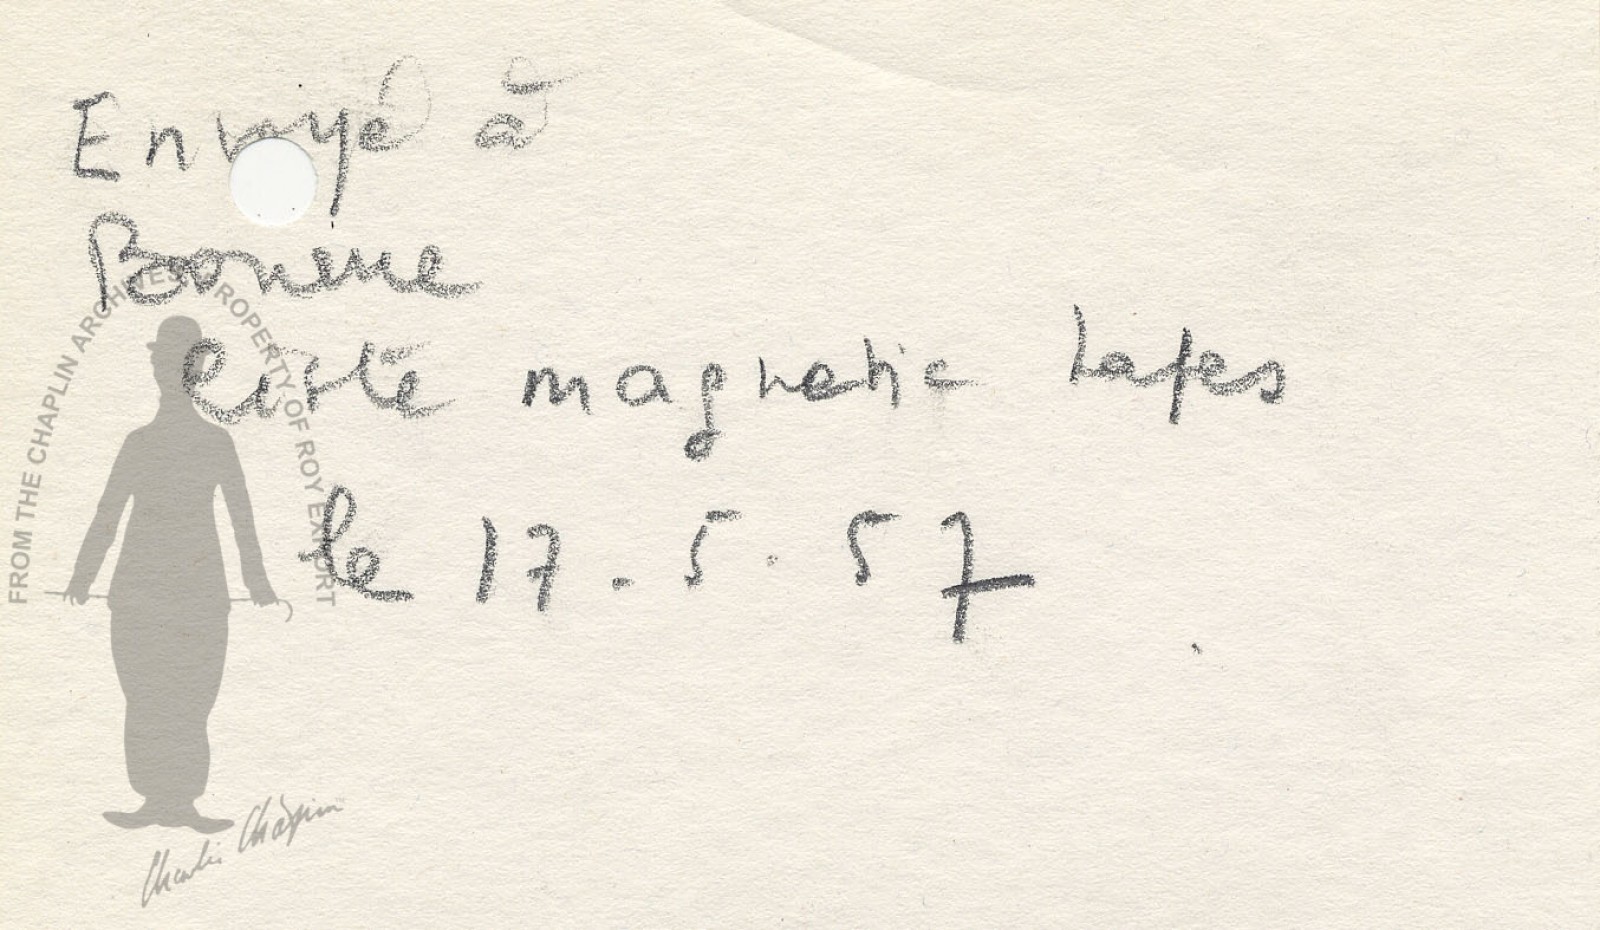 Envoyé à
Bonene
liste magnetic tapes
le 17.5.57
FROM THE CHAPLIN ARCHIVES. PROPERTY OF ROY EXPORT
Charlie Chaplin